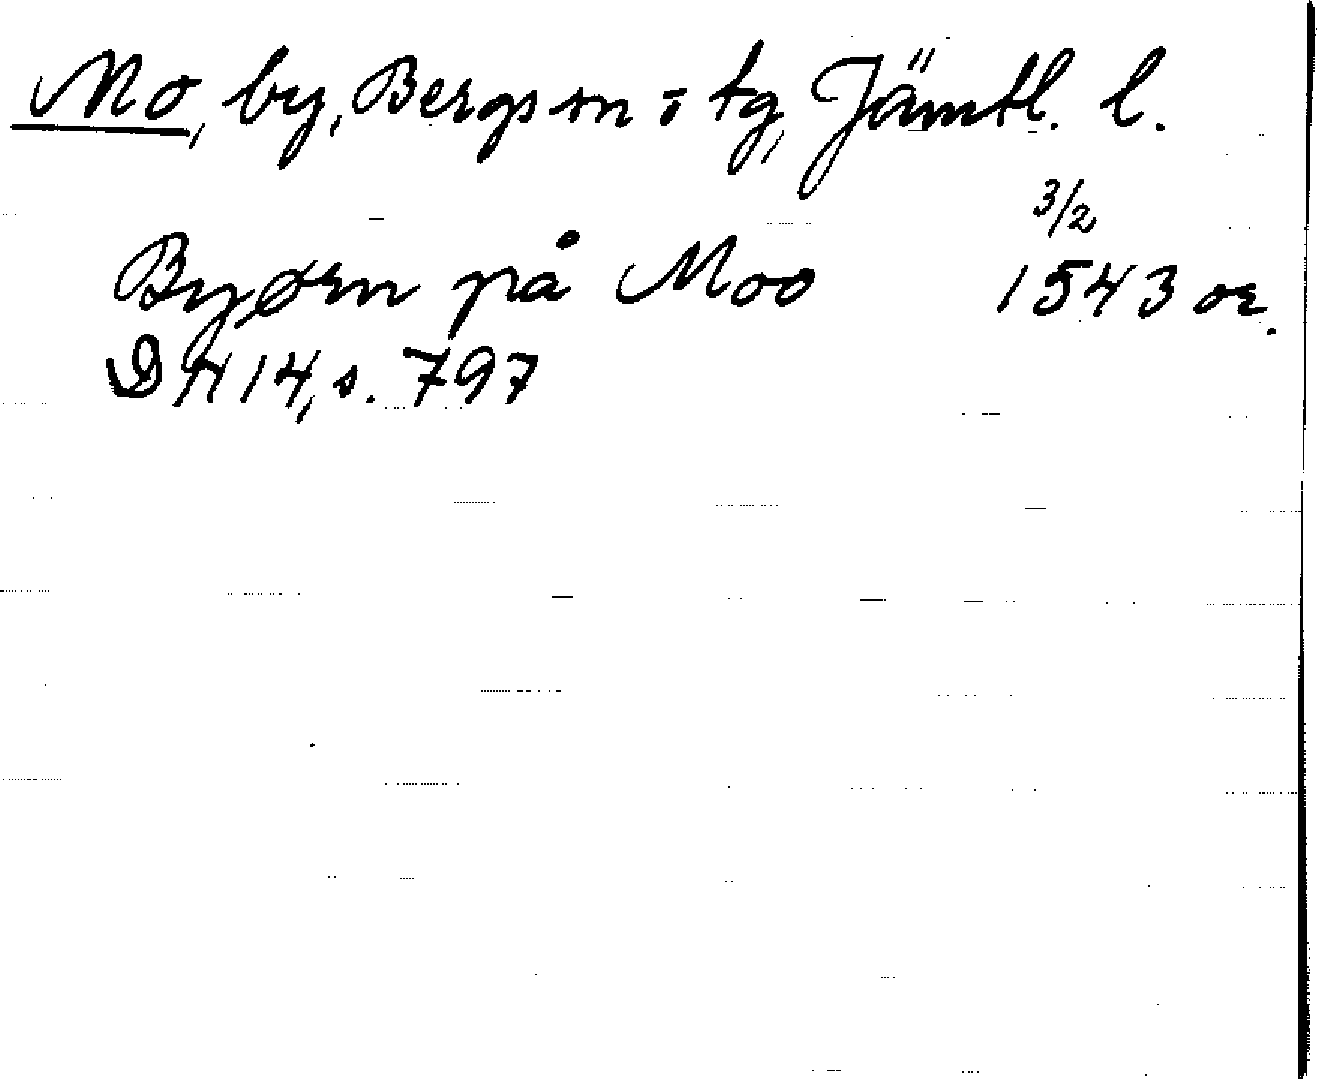 Mo, by, Bergs sn o tg, Jämtl. l.
3/2
Byørn på Moo 1543 or.
DN 14, s. 797